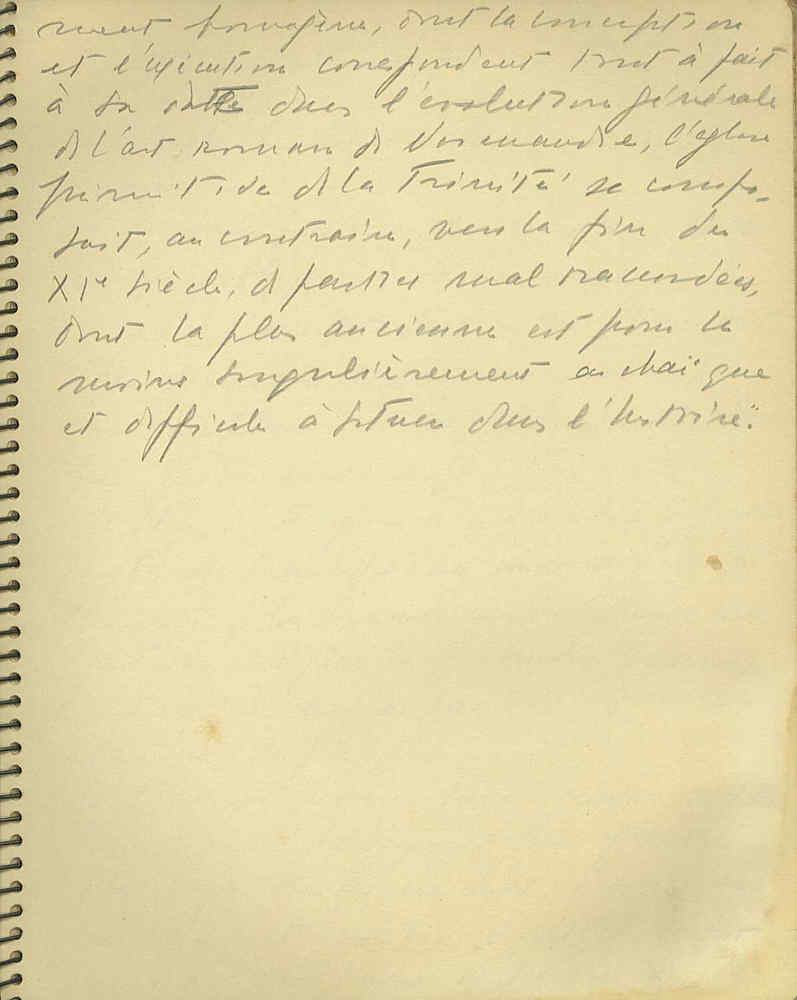 ment homogène, dont la conception
et l'exécution correspondent tout à fait
à sa date dans l'évolution générale
de l'art roman de Normandie, l'église
primitive de la Trinité se compo-
sait, au contraire, vers la fin du
XIe siècle, d parties mal raccordées,
dont la plus ancienne est pour le
moins singulièrement archaïque
et difficile à situer dans l'histoire."